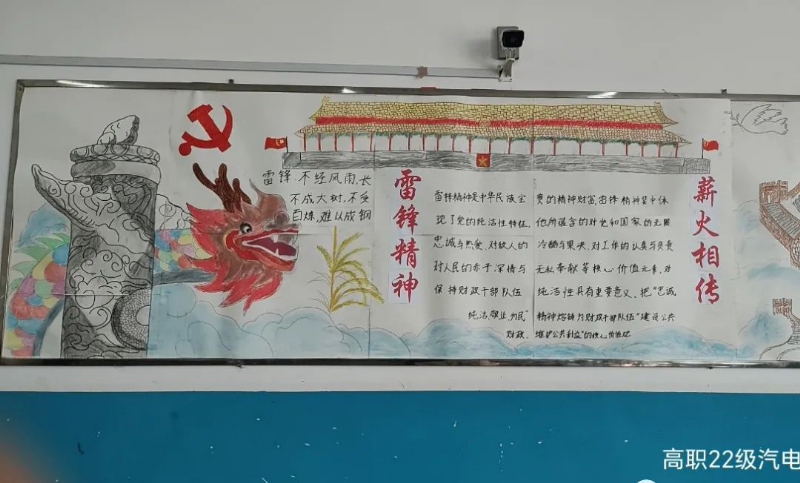 雷锋:不经风雨,长
不成大树,不受
百炼,难以成钢
雷锋精神
雷锋精神是中华民族宝贵的精神财富,雷锋精神集中体
现了党的纯洁性特征,他所蕴含的对党和国家的无限
忠诚与热爱,对敌人的冷酷与果决,对工作的认真与负责
对人民的赤子深情与无私奉献等核心价值元素,对
保持财政干部队伍纯洁性具有重要意义、把“忠诚,
纯洁,敬业,为民”精神熔铸为财政干部队伍“建设公共
财政、维护公共利益”的核心价值观
薪火相传
高职22级汽电